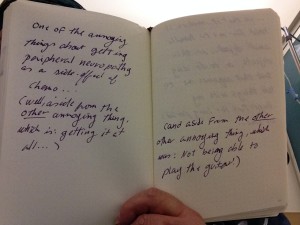 One of the annoying
things about getting
peripheral neuropathy
as a side-effect of
chemo...
(well, aside from the
other annoying thing,
which is: getting it at
all...)
(and aside from the other
other annoying thing, which
was: not being able to
play the guitar!)